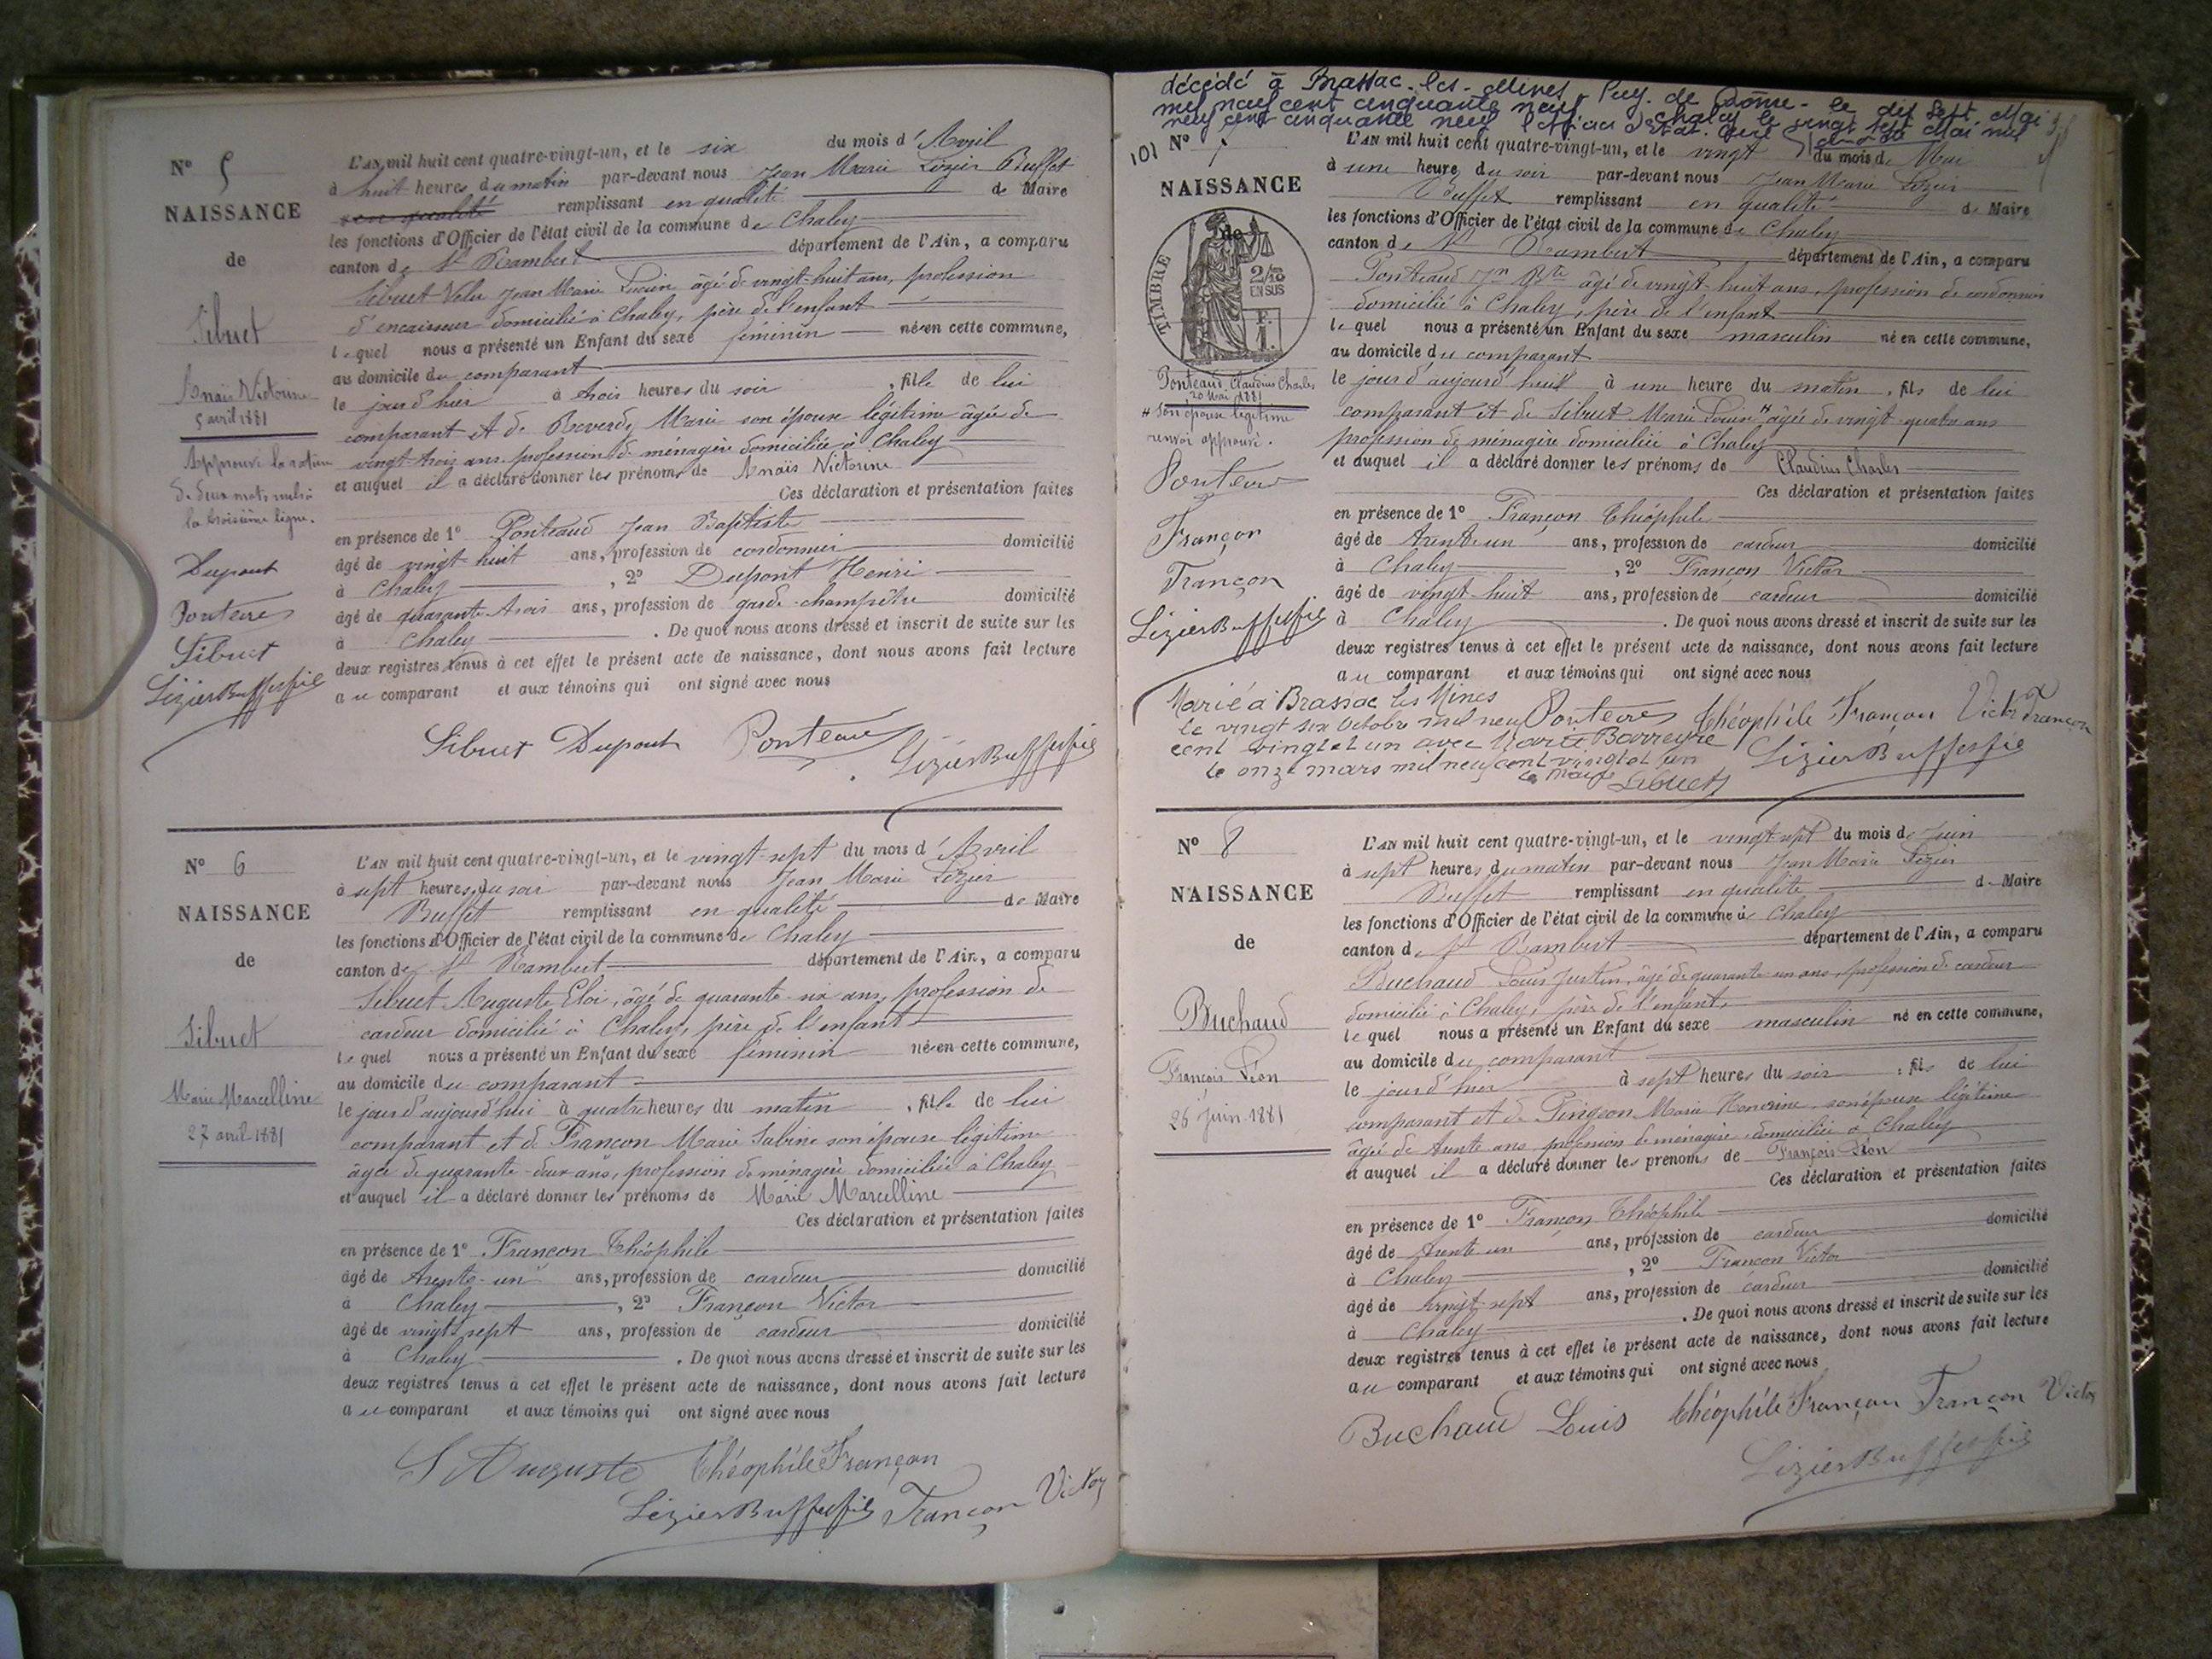 N° 5
NAISSANCE
de
Sibuet
Anaïs Victorine
5 avril 1881
Approuvé la rature
de deux mots nuls à
la troisième ligne.
Dupont
Sibuet
LizierBuffetfils
L'AN mil huit cent quatre-vingt-un, et le six du mois d'Avril
à huit heures du matin par-devant nous Jean Marie Lizier Buffet
en qualité remplissant en qualité de Maire
les fonctions d'Officier de l'état civil de la commune de Chaley
canton de St Rambert département de l'Ain, a comparu
Sibuet Jean Marie Lucien âgé de vingt-huit ans, profession
d'encaisseur domicilié à Chaley, père de l'enfant
lequel nous a présenté un Enfant du sexe féminin née en cette commune,
au domicile du comparant
le jour d'hier à trois heures du soir, fille de lui
comparant et de Reverdy Marie son épouse légitime âgée de
vingt-trois ans profession de ménagère domiciliée à Chaley
et auquel il a déclaré donner les prénoms de Anaïs Victorine
Ces déclaration et présentation faites
en présence de 1° Ponteaud Jean Baptiste
âgé de vingt-huit ans, profession de cordonnier domicilié
à Chaley, 2° Dupont Henri
âgé de quarante-trois ans, profession de garde-champêtre domicilié
à Chaley. De quoi nous avons dressé et inscrit de suite sur les
deux registres tenus à cet effet le présent acte de naissance, dont nous avons fait lecture
au comparant et aux témoins qui ont signé avec nous
Sibuet Dupont LizierBuffetfils
N° 6
NAISSANCE
de
Sibuet
Marie Marcelline
27 avril 1881
L'AN mil huit cent quatre-vingt-un, et le vingt-sept du mois d'Avril
à sept heures du soir par-devant nous Jean Marie Lizier
Buffet remplissant en qualité de Maire
les fonctions d'Officier de l'état civil de la commune de Chaley
canton de St Rambert département de l'Ain, a comparu
Sibuet Auguste Eloi, âgé de quarante-six ans, profession de
cardeur domicilié à Chaley, père de l'enfant
lequel nous a présenté un Enfant du sexe féminin née en cette commune,
au domicile du comparant
le jour d'aujourd'hui à quatre heures du matin, fille de lui
comparant et de Françon Marie Sabine son épouse légitime
âgée de quarante-deux ans, profession de ménagère domiciliée à Chaley
et auquel il a déclaré donner les prénoms de Marie Marcelline
Ces déclaration et présentation faites
en présence de 1° Françon Théophile
âgé de trente-un ans, profession de cardeur domicilié
à Chaley, 2° Françon Victor
âgé de vingt-sept ans, profession de cardeur domicilié
à Chaley. De quoi nous avons dressé et inscrit de suite sur les
deux registres tenus à cet effet le présent acte de naissance, dont nous avons fait lecture
au comparant et aux témoins qui ont signé avec nous
S Auguste Théophile Françon
LizierBuffetfils Françon Victor
décédé à Brassac-les-Mines Puy-de-Dôme-le dix sept Mai
mil neuf cent cinquante neuf Chaley le vingt sept Mai mil
neuf cent cinquante neuf l'officier d'Etat-Civil
101 N° 7
NAISSANCE
de
TIMBRE
2/10
EN SUS
F.
1.
Ponteaud, Claudius Charles
20 Mai 1881
# Son épouse légitime
renvoi approuvé.
Françon
Françon
LizierBuffetfils
L'AN mil huit cent quatre-vingt-un, et le vingt du mois de Mai
à une heure du soir par-devant nous Jean Marie Lizier
Buffet remplissant en qualité de Maire
les fonctions d'Officier de l'état civil de la commune de Chaley
canton de St Rambert département de l'Ain, a comparu
Ponteaud Jn Bte âgé de vingt-huit ans, profession de cordonnier
domicilié à Chaley, père de l'enfant
lequel nous a présenté un Enfant du sexe masculin né en cette commune,
au domicile du comparant
le jour d'aujourd'hui à une heure du matin, fils de lui
comparant et de Sibuet Marie Louise # âgée de vingt-quatre ans
profession de ménagère domiciliée à Chaley
et auquel il a déclaré donner les prénoms de Claudius Charles
Ces déclaration et présentation faites
en présence de 1° Françon Théophile
âgé de trente-un ans, profession de cardeur domicilié
à Chaley, 2° Françon Victor
âgé de vingt-huit ans, profession de cardeur domicilié
à Chaley. De quoi nous avons dressé et inscrit de suite sur les
deux registres tenus à cet effet le présent acte de naissance, dont nous avons fait lecture
au comparant et aux témoins qui ont signé avec nous
Marié à Brassac les Mines
le vingt six Octobre mil neuf
cent vingt et un avec Marie Barreyre
le onze mars mil neuf cent vingt et un
Le Maire Sibuet
Théophile Françon Victor Françon
LizierBuffetfils
N° 8
NAISSANCE
de
Buchaud
François Léon
26 Juin 1881
L'AN mil huit cent quatre-vingt-un, et le vingt-sept du mois de Juin
à sept heures du matin par-devant nous Jean Marie Lizier
Buffet remplissant en qualité de Maire
les fonctions d'Officier de l'état civil de la commune de Chaley
canton de St Rambert département de l'Ain, a comparu
Buchaud Louis Justin, âgé de quarante-un ans, profession de cardeur
domicilié à Chaley, père de l'enfant,
lequel nous a présenté un Enfant du sexe masculin né en cette commune,
au domicile du comparant
le jour d'hier à sept heures du soir, fils de lui
comparant et de Pingeon Marie Honorine, son épouse légitime
âgée de trente ans profession de ménagère domiciliée à Chaley
et auquel il a déclaré donner les prénoms de François Léon
Ces déclaration et présentation faites
en présence de 1° Françon Théophile
âgé de trente un ans, profession de cardeur domicilié
à Chaley, 2° Françon Victor
âgé de vingt-sept ans, profession de cardeur domicilié
à Chaley. De quoi nous avons dressé et inscrit de suite sur les
deux registres tenus à cet effet le présent acte de naissance, dont nous avons fait lecture
au comparant et aux témoins qui ont signé avec nous
Buchaud Louis Théophile Françon Françon Victor
LizierBuffetfils